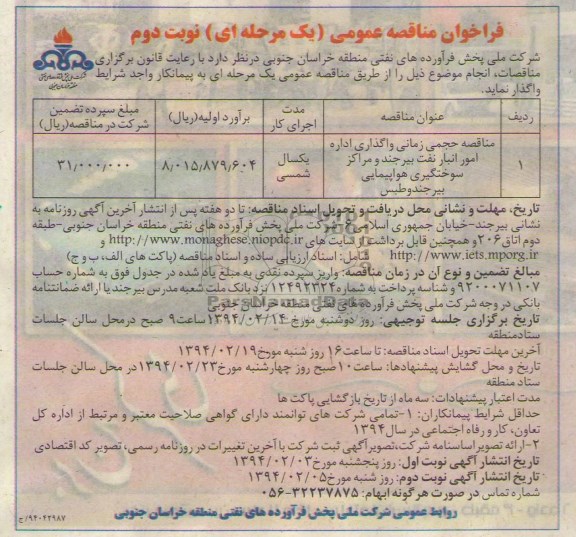 فراخوان مناقصه عمومی (یک مرحله ای) نوبت دوم
شرکت ملی پخش فرآورده های نفتی منطقه خراسان جنوبی درنظر دارد با رعایت قانون برگزاری
مناقصات، انجام موضوع ذیل را از طریق مناقصه عمومی یک مرحله ای به پیمانکار واجد شرایط
واگذار نماید.
ردیف عنوان مناقصه مدت اجرای کار برآورد اولیه(ریال) مبلغ سپرده تضمین شرکت در مناقصه(ریال)
۱ مناقصه حجمی زمانی واگذاری اداره امور انبار نفت بیرجند و مراکز سوختگیری هواپیمایی بیرجندوطبس یکسال شمسی ۸,۰۱۵,۸۷۹,۶۰۴ ۳۱,۰۰۰,۰۰۰
تاریخ، مهلت و نشانی محل دریافت و تحویل اسناد مناقصه: تا دو هفته پس از انتشار آخرین آگهی روزنامه به
نشانی بیرجند-خیابان جمهوری اسلامی شرکت ملی پخش فرآورده های نفتی منطقه خراسان جنوبی-طبقه
دوم اتاق۲۰۶و همچنین قابل برداشت از سایت های http://www.monaghese.niopdc.ir و
http://www.iets.mporg.ir شامل: اسناد ارزیابی ساده و اسناد مناقصه (پاکت های الف، ب و ج)
مبالغ تضمین و نوع آن در زمان مناقصه: واریز سپرده نقدی به مبلغ یاد شده در جدول فوق به شماره حساب
۹۲۰۰۰۷۱۱۰۷ و شناسه پرداخت به شماره۱۲۴۹۲۳۲۴ نزد بانک ملت شعبه مدرس بیرجندیا ارائه ضمانتنامه
بانکی در وجه شرکت ملی پخش فرآورده های نفتی منطقه خراسان جنوبی
تاریخ برگزاری جلسه توجیهی: روز دوشنبه مورخ ۱۳۹۴/۰۲/۱۴ساعت۹ صبح درمحل سالن جلسات
ستادمنطقه
آخرین مهلت تحویل اسناد مناقصه: تا ساعت۱۶ روز شنبه مورخ۱۳۹۴/۰۲/۱۹
تاریخ و محل گشایش پیشنهادها: ساعت۱۰صبح روز چهارشنبه مورخ۱۳۹۴/۰۲/۲۳در محل سالن جلسات
ستاد منطقه
مدت اعتبار پیشنهادات: سه ماه از تاریخ بازگشایی پاکت ها
حداقل شرایط پیمانکاران: ۱-تمامی شرکت های توانمند دارای گواهی صلاحیت معتبر و مرتبط از اداره کل
تعاون، کار و رفاه اجتماعی در سال۱۳۹۴
۲-ارائه تصویراساسنامه شرکت،تصویرآگهی ثبت شرکت با آخرین تغییرات در روزنامه رسمی، تصویر کد اقتصادی
تاریخ انتشار آگهی نوبت اول: روز پنجشنبه مورخ۱۳۹۴/۰۲/۰۳
تاریخ انتشار آگهی نوبت دوم: روز شنبه مورخ۱۳۹۴/۰۲/۰۵
شماره تماس در صورت هرگونه ابهام: ۳۲۲۳۷۸۷۵-۰۵۶
روابط عمومی شرکت ملی پخش فرآورده های نفتی منطقه خراسان جنوبی
۹۴۰۴۲۹۸۷/خ